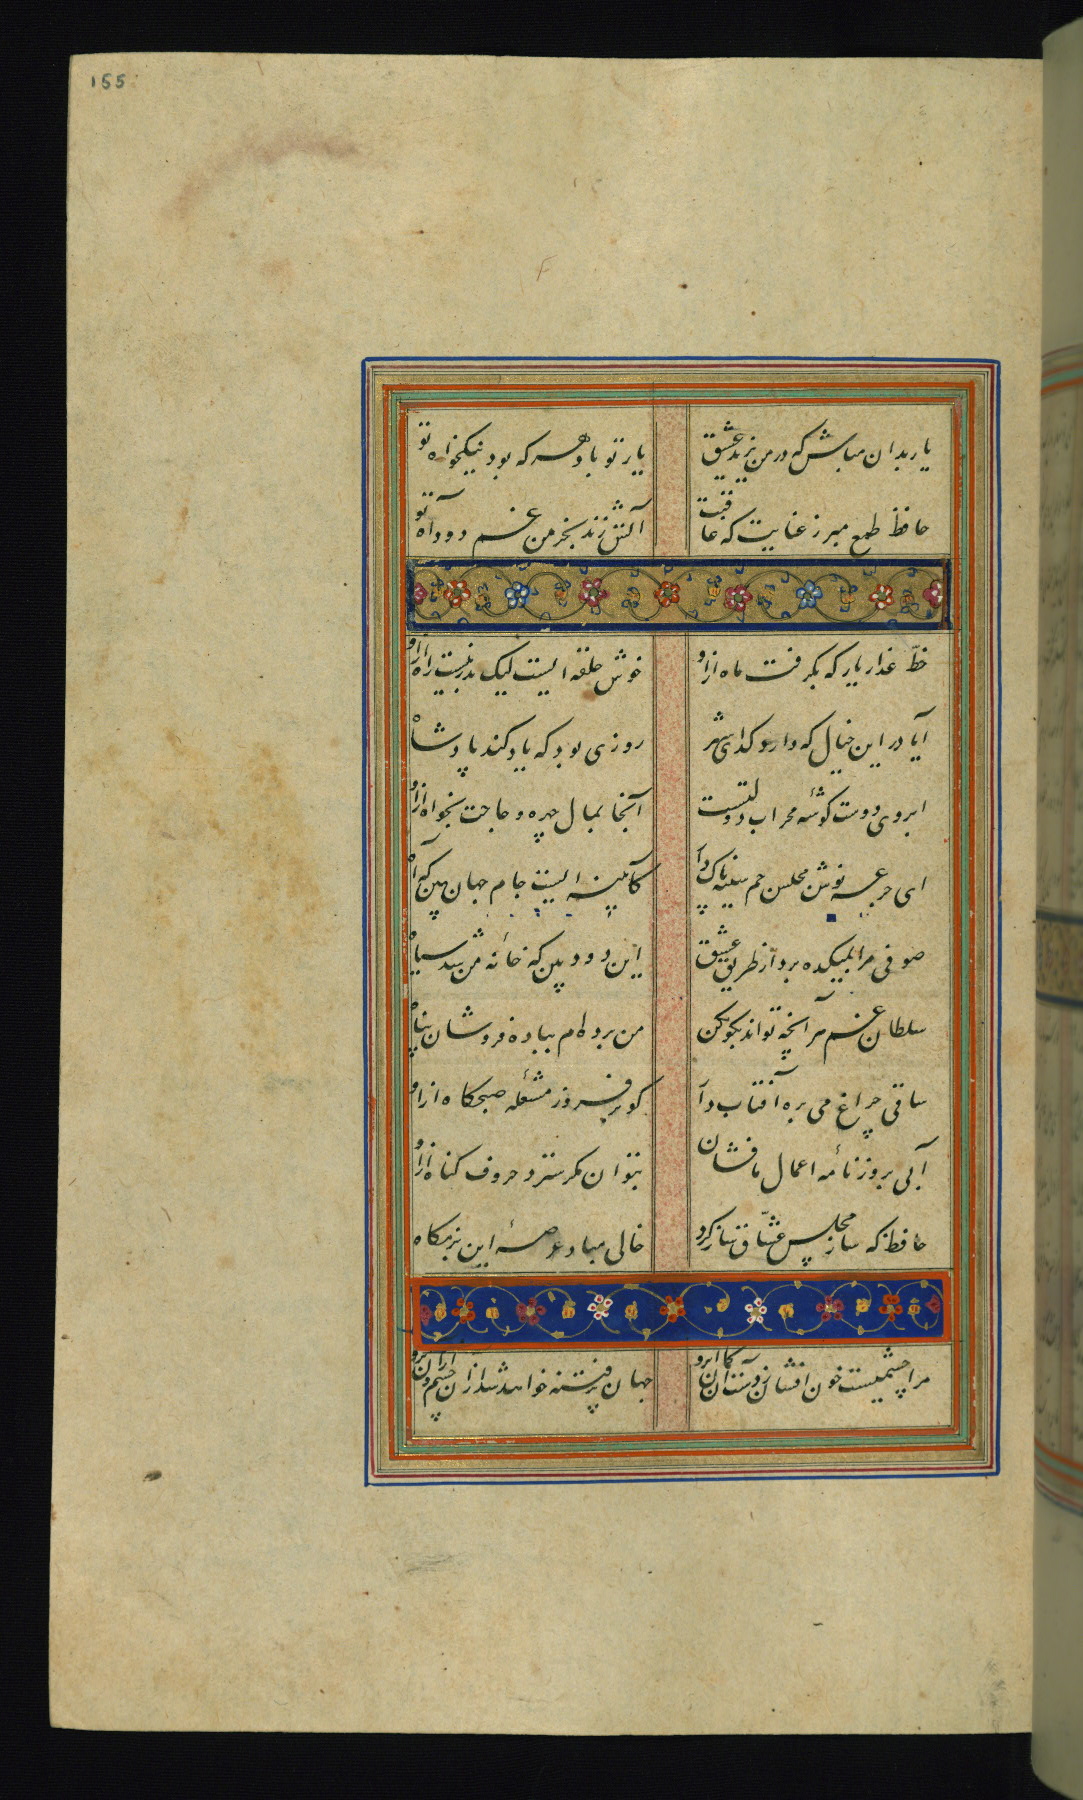 155
یار بدان مباش که در من یزید عشق
یار تو باد هر که بود نیکخواه تو
حافظ طمع مبر ز عنایت که عاقبت
آتش زند بخرمن غم دود آه تو
خط عذار یار که بگرفت ماه ازو
خوش حلقه ایست لیک بدر نیست راه ازو
آیا در این خیال که دارد کدای شهر
روزی بود که یاد کند پادشاه
ابروی دوست کوشه محراب دولتست
آنجا بمال چهره و حاجت بخواه ازو
ای جرعه نوش مجلس جم سینه پاک دار
کآینه ایست جام جهان بین که آه
صوفی مرا بمیکده برد از طریق عشق
این دود بین که خانه من شد سیاه
سلطان غم هر آنچه تواند بکو بکن
من برده ام بباده فروشان پناه
ساقی چراغ می بره آفتاب دار
کو بر فروز مشعله صبحکاه ازو
آبی بروزنامه اعمال ما فشان
بتوان مکر سترد حروف کناه ازو
حافظ که ساز مجلس عشاق ساز کرد
خالی مباد عرصه این بزمکاه
مرا چشمیست خون افشان ز دست آن کمان ابرو
جهان پر فتنه خواهد شد از آن چشم و از آن ابرو